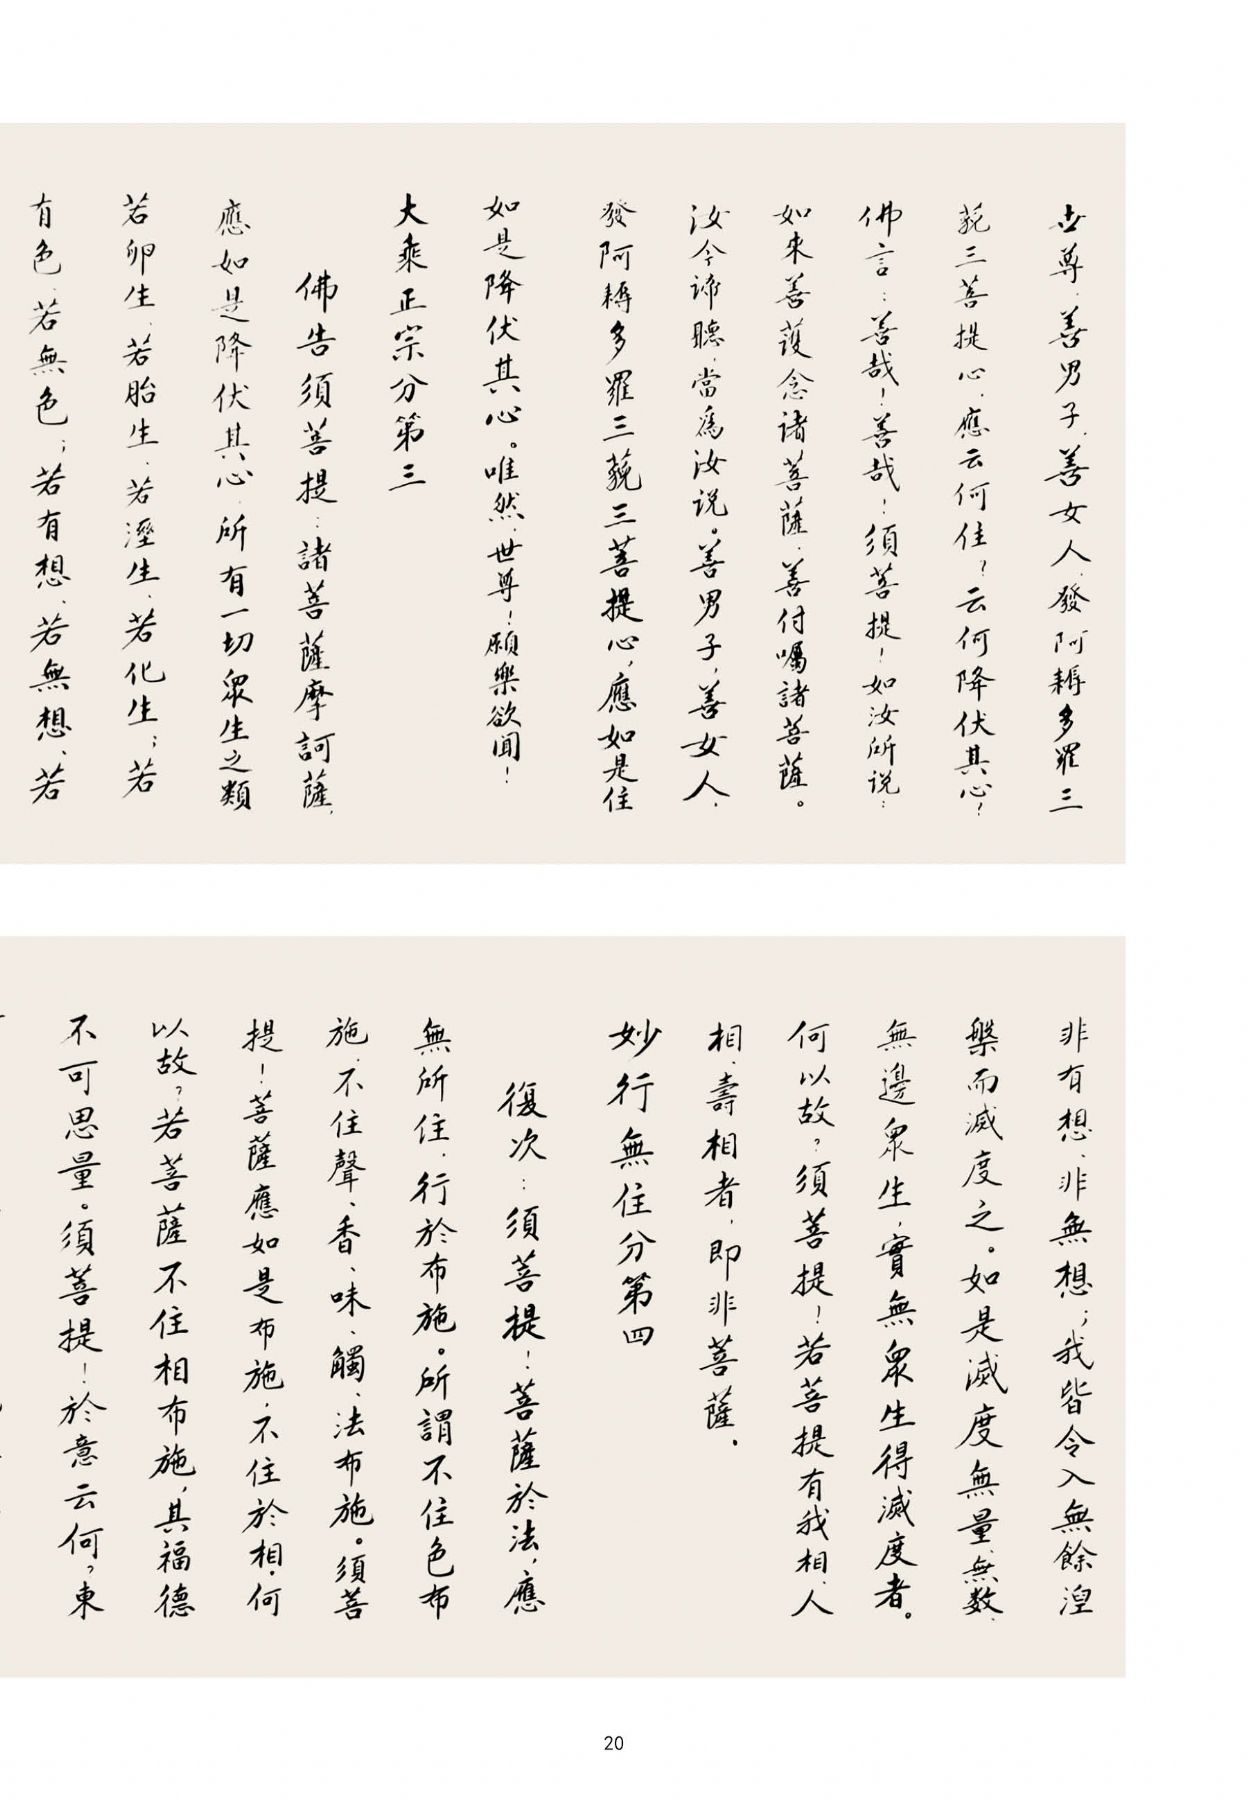 世尊、善男子、善女人、發阿耨多羅三
藐三菩提心、應云何住?云何降伏其心!
佛言:善哉!善哉!須菩提!如汝所说:
如來善護念诸菩薩、善付囑諸菩薩。
汝今諦聽、當爲汝说。善男子、善女人、
發阿耨多羅三藐三菩提心,應如是住
如是降伏其心。唯然、世尊!願樂欲聞!
大乘正宗分第三
佛告須菩提:諸菩薩摩訶薩、
應如是降伏其心、所有一切眾生之類
若卵生、若胎生、若溼生、若化生;若
有色、若無色;若有想、若無想、若
非有想、非無想;我皆令入無餘涅
槃而滅度之。如是滅度無量、無数、
無邊眾生,實無眾生得滅度者。
何以故?須菩提!若菩提有我相、人
相、壽相者,即非菩薩。
妙行無住分第四
復次:須菩提!菩薩於法,應
無所住、行於布施。所謂不住色布
施、不住聲、香、味、觸、法布施。須菩
提!菩薩應如是布施,不住於相。何
以故?若菩薩不住相布施,其福德
不可思量。須菩提!於意云何?東
20